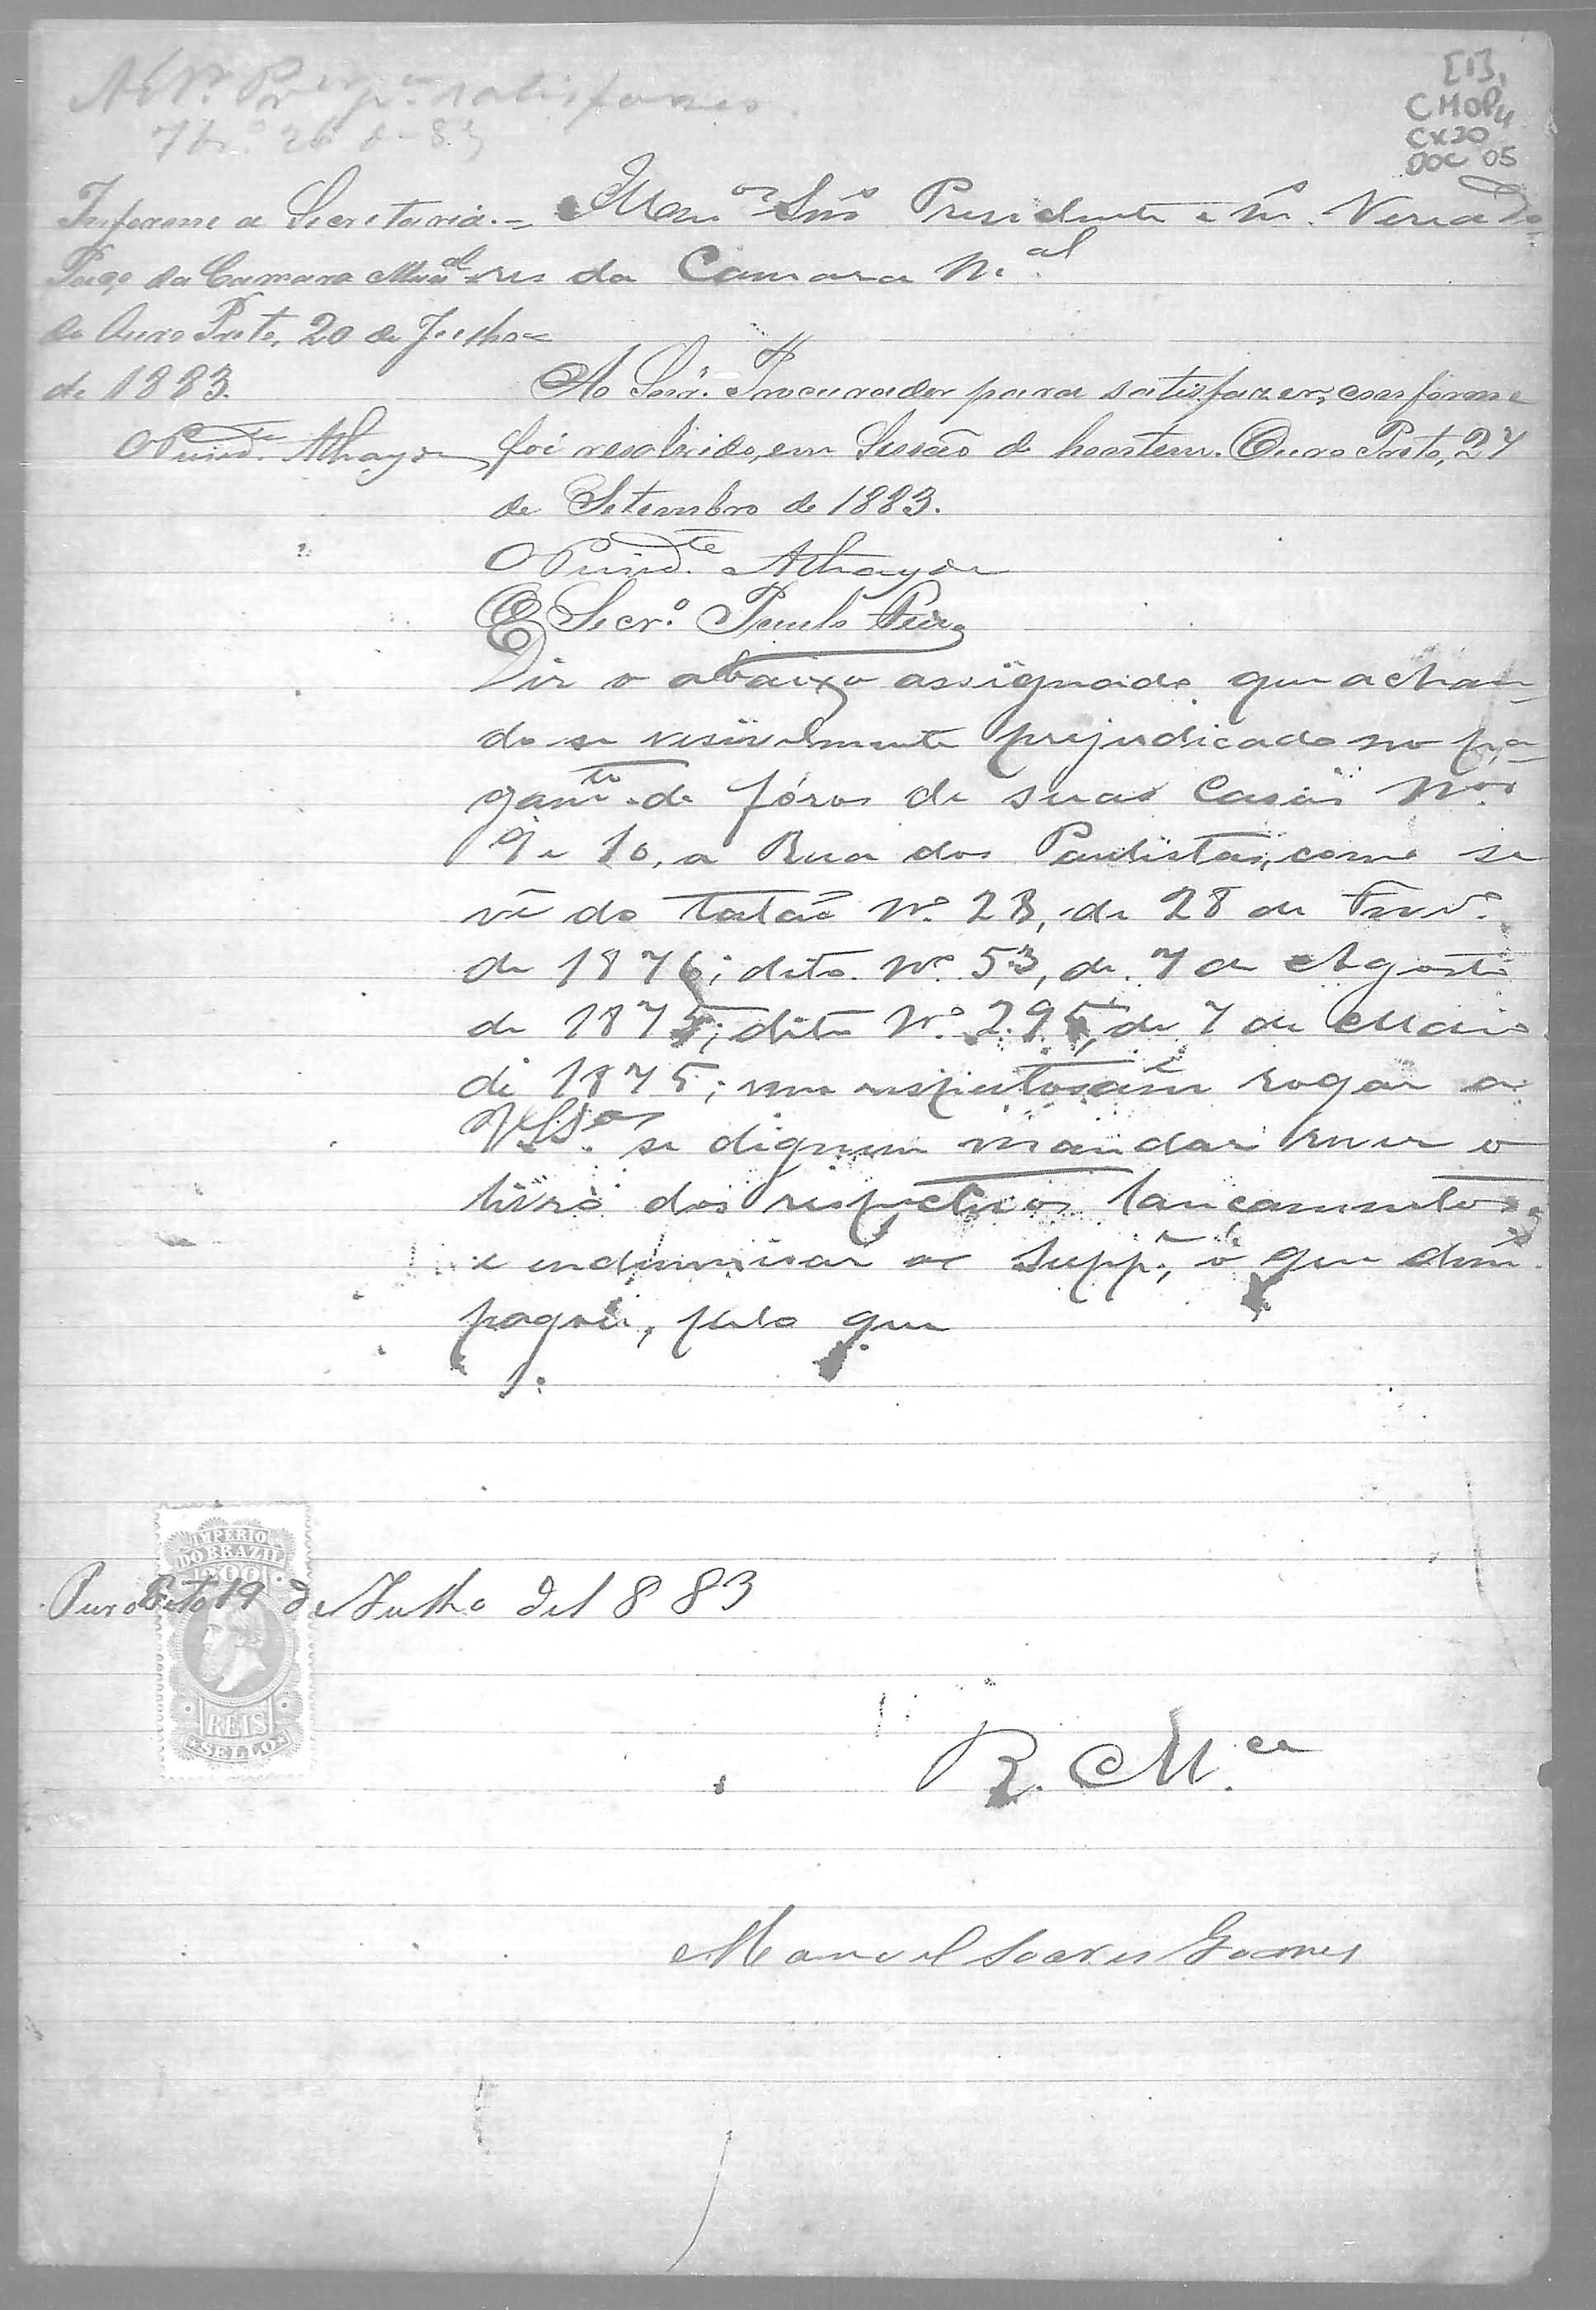 [1],
CMOP4
CX30
DOC 05
7br.º 26 d- 83
Informe a Secretaria. =
Paço da Camara Mun.al
do Ouro Preto, 20 de Julho
de 1883.
O Presid.te Athayde
Illmos Snrs Presidente e Vereado-
res da Camara M.al
Ao Snr. Procurador para satisfazer, conforme
foi resolvido, em Sessão de hontem. Ouro Preto, 27
de Setembro de 1883.
O Presid.te Athayde
O Secr.º Paulo
Diz o abaixo assignado que achan-
do se visivelmente prejudicado no pa-
gam.to de fóros de suas Casas Nos
9 e 10, a Rua dos Paulistas, como se
vê do talão Nº 23, de 28 de Fevr.º
de 1876; dito Nº 53, de 7 de Agosto
de 1875; dito Nº 295, de 7 de Maio
de 1875; vem respeitosam.e rogar a
VSSas se dignem mandar rever o
livro dos respectivos lançamentos
e indemnisar ao Supp.e, o que dem.
pagou, pelo que
IMPERIO
DO BRAZIL
200
REIS
SELLO
Ouro Preto 19 de Julho de 1883
R. M.ce
Manoel Soares Gomes